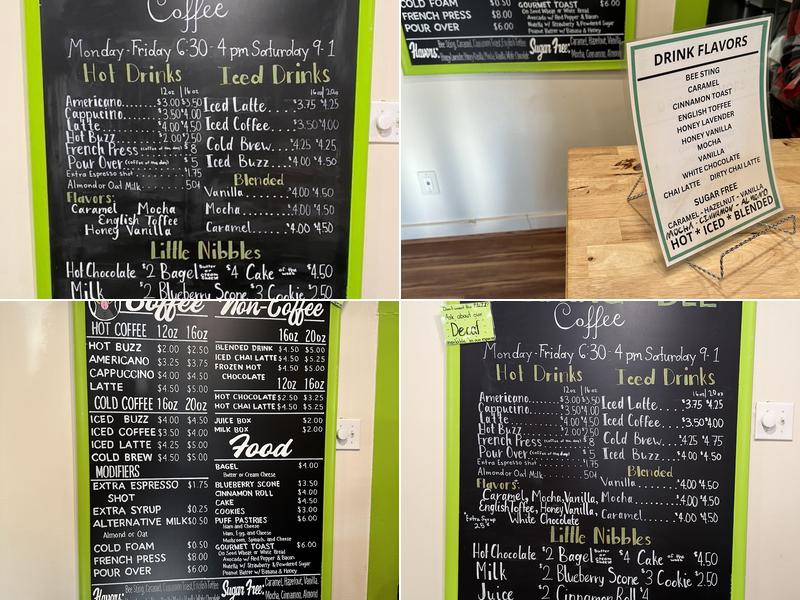 Coffee
Monday-Friday 6:30-4pm Saturday 9-1
Hot Drinks Iced Drinks
12oz | 16oz
16oz | 20oz
Americano.......$3.00 $3.50 Iced Latte....$3.75 $4.25
Cappucino.......$3.50 $4.00
Latte.......$4.00 $4.50 Iced Coffee....$3.50 $4.00
Hot Buzz.......$2.00 $2.50 Cold Brew....$4.25 $4.25
French Press (coffee of the day) $8
Pour Over (coffee of the day) $5 Iced Buzz....$4.00 $4.50
Extra Espresso shot $1.75
Almond or Oat Milk .50¢
Blended
Vanilla.......$4.00 $4.50
Mocha.......$4.00 $4.50
Caramel.......$4.00 $4.50
Flavors:
Caramel Mocha
English Toffee
Honey Vanilla
Little Nibbles
Hot Chocolate $2 Bagel butter or cream cheese $4 Cake of the week $4.50
Milk $2 Blueberry Scone $3 Cookie $2.50
COLD FOAM $0.50
FRENCH PRESS $8.00
POUR OVER $6.00
GOURMET TOAST $6.00
On Seed Wheat or White Bread
Avocado w/ Red Pepper & Bacon
Nutella w/ Strawberry & Powdered Sugar
Peanut Butter w/ Banana & Honey
Flavors: Bee Sting, Caramel, Cinnamon Toast, English Toffee
Sugar Free: Caramel, Hazelnut, Vanilla,
Mocha, Cinnamon, Almond
DRINK FLAVORS
BEE STING
CARAMEL
CINNAMON TOAST
ENGLISH TOFFEE
HONEY LAVENDER
HONEY VANILLA
MOCHA
VANILLA
WHITE CHOCOLATE
CHAI LATTE DIRTY CHAI LATTE
SUGAR FREE
CARAMEL - HAZELNUT - VANILLA
MOCHA - CINNAMON - ALMOND
HOT * ICED * BLENDED
Coffee Non-Coffee
HOT COFFEE 12oz 16oz
HOT BUZZ $2.00 $2.50
AMERICANO $3.25 $3.75
CAPPUCCINO $4.00 $4.50
LATTE $4.50 $5.00
COLD COFFEE 16oz 20oz
ICED BUZZ $4.00 $4.50
ICED COFFEE $3.50 $4.00
ICED LATTE $4.25 $5.00
COLD BREW $4.50 $5.00
MODIFIERS
EXTRA ESPRESSO SHOT $1.75
EXTRA SYRUP $0.25
ALTERNATIVE MILK $0.50
Almond or Oat
COLD FOAM $0.50
FRENCH PRESS $8.00
POUR OVER $6.00
16oz 20oz
BLENDED DRINK $4.50 $5.00
ICED CHAI LATTE $4.50 $5.25
FROZEN HOT CHOCOLATE $4.50 $5.00
12oz 16oz
HOT CHOCOLATE $2.50 $3.25
HOT CHAI LATTE $4.50 $5.25
JUICE BOX $2.00
MILK BOX $2.00
Food
BAGEL $4.00
Butter or Cream Cheese
BLUEBERRY SCONE $3.50
CINNAMON ROLL $4.00
CAKE $4.50
COOKIES $3.00
PUFF PASTRIES $6.00
Ham and Cheese
Ham, Egg, and Cheese
Mushroom, Spinach, and Cheese
GOURMET TOAST $6.00
On Seed Wheat or White Bread
Avocado w/ Red Pepper & Bacon
Nutella w/ Strawberry & Powdered Sugar
Peanut Butter w/ Banana & Honey
Flavors: Bee Sting, Caramel, Cinnamon Toast, English Toffee
Sugar Free: Caramel, Hazelnut, Vanilla,
Mocha, Cinnamon, Almond
Ask about our
Decaf
Coffee
Monday-Friday 6:30-4pm Saturday 9-1
Hot Drinks Iced Drinks
12oz | 16oz
16oz | 20oz
Americano.......$3.00 $3.50 Iced Latte....$3.75 $4.25
Cappucino.......$3.50 $4.00
Latte.......$4.00 $4.50 Iced Coffee....$3.50 $4.00
Hot Buzz.......$2.00 $2.50
French Press (coffee of the day) $8 Cold Brew....$4.25 $4.75
Pour Over (coffee of the day) $5 Iced Buzz....$4.00 $4.50
Extra Espresso shot $1.75
Almond or Oat Milk .50¢
Blended
Vanilla.......$4.00 $4.50
Mocha.......$4.00 $4.50
Caramel.......$4.00 $4.50
Flavors:
Caramel, Mocha, Vanilla,
English Toffee, Honey Vanilla,
White Chocolate
*Extra Syrup
25¢
Little Nibbles
Hot Chocolate $2 Bagel butter or cream cheese $4 Cake of the week $4.50
Milk $2 Blueberry Scone $3 Cookie $2.50
Juice $2 Cinnamon Roll $4